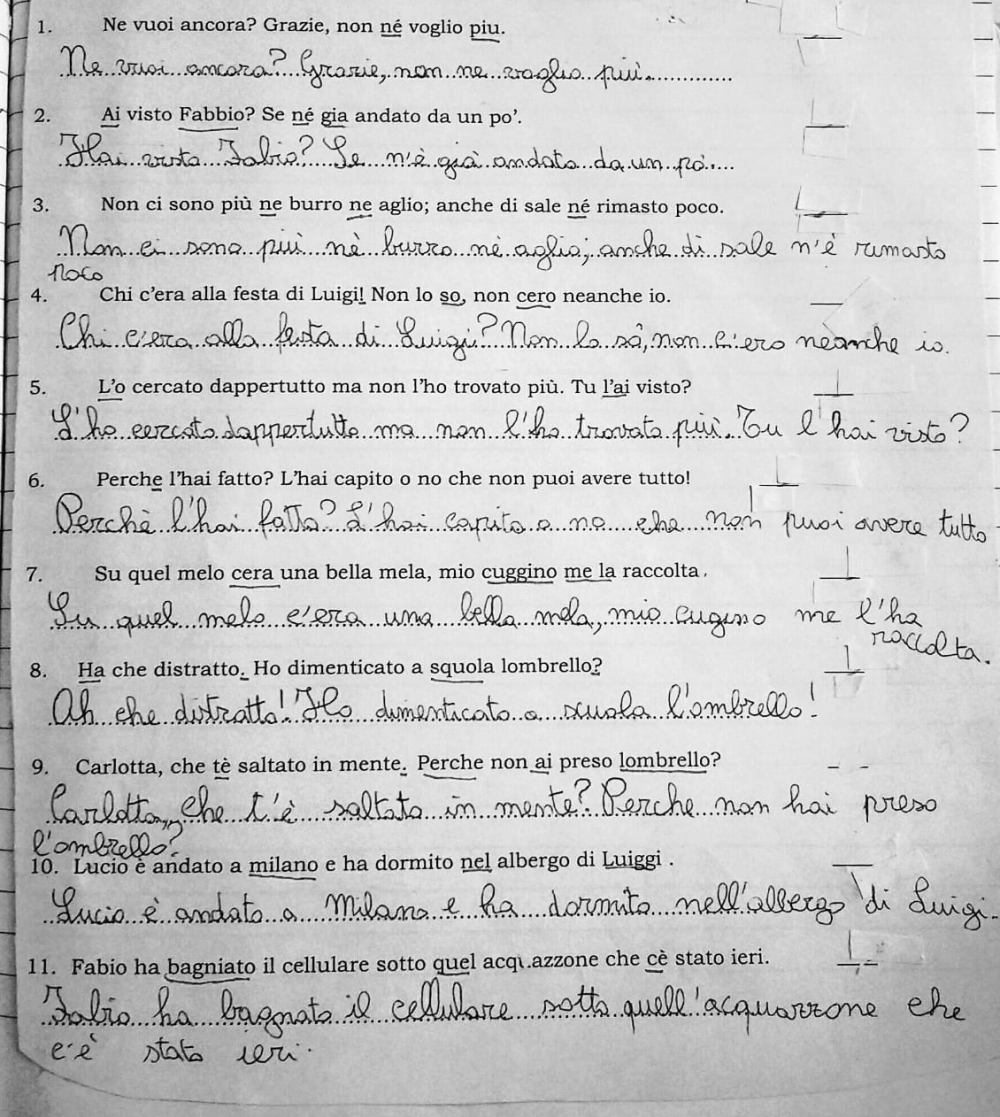 1. Ne vuoi ancora? Grazie, non né voglio piu.
Ne vuoi ancora? Grazie, non ne voglio più
2. Ai visto Fabbio? Se né gia andato da un po'.
Hai visto Fabio? Se n'è già andato da un pò
3. Non ci sono più ne burro ne aglio; anche di sale né rimasto poco.
Non ci sono più nè burro nè aglio; anche di sale n'è rimasto
poco
4. Chi c'era alla festa di Luigi! Non lo so, non cero neanche io.
Chi c'era alla festa di Luigi? Non lo sò, non c'ero neanche io.
5. L'o cercato dappertutto ma non l'ho trovato più. Tu l'ai visto?
L'ho cercato dappertutto ma non l'ho trovato più. Tu l'hai visto?
6. Perche l'hai fatto? L'hai capito o no che non puoi avere tutto!
Perchè l'hai fatto? L'hai capito o no che non puoi avere tutto
7. Su quel melo cera una bella mela, mio cuggino me la raccolta.
Su quel melo c'era una bella mela, mio cugino me l'ha
raccolta.
8. Ha che distratto. Ho dimenticato a squola lombrello?
Ah che distratto! Ho dimenticato a scuola l'ombrello!
9. Carlotta, che tè saltato in mente. Perche non ai preso lombrello?
Carlotta, che t'è saltato in mente? Perche non hai preso
l'ombrello?
10. Lucio è andato a milano e ha dormito nel albergo di Luiggi .
Lucio è andato a Milano e ha dormito nell'albergo di Luigi.
11. Fabio ha bagniato il cellulare sotto quel acquazzone che cè stato ieri.
Fabio ha bagnato il cellulare sotto quell'acquazzone che
c'è stato ieri.